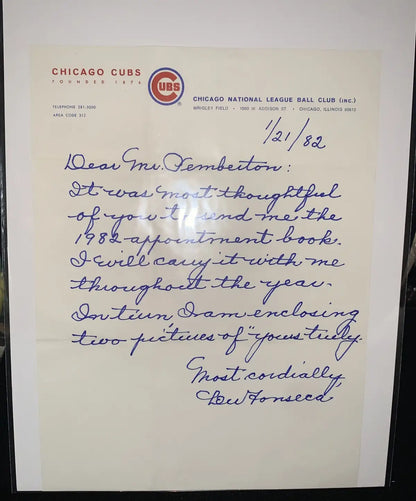 CHICAGO CUBS
FOUNDED 1876
CUBS
TELEPHONE 281-5050
AREA CODE 312
CHICAGO NATIONAL LEAGUE BALL CLUB (INC.)
WRIGLEY FIELD • 1060 W. ADDISON ST. • CHICAGO, ILLINOIS 60613
1/21/82
Dear Mr. Pemberton:
It was most thoughtful
of you to send me the
1982 appointment book.
I will carry it with me
throughout the year.
In turn, I am enclosing
two pictures of "yours truly.
Most cordially,
Lew Fonseca